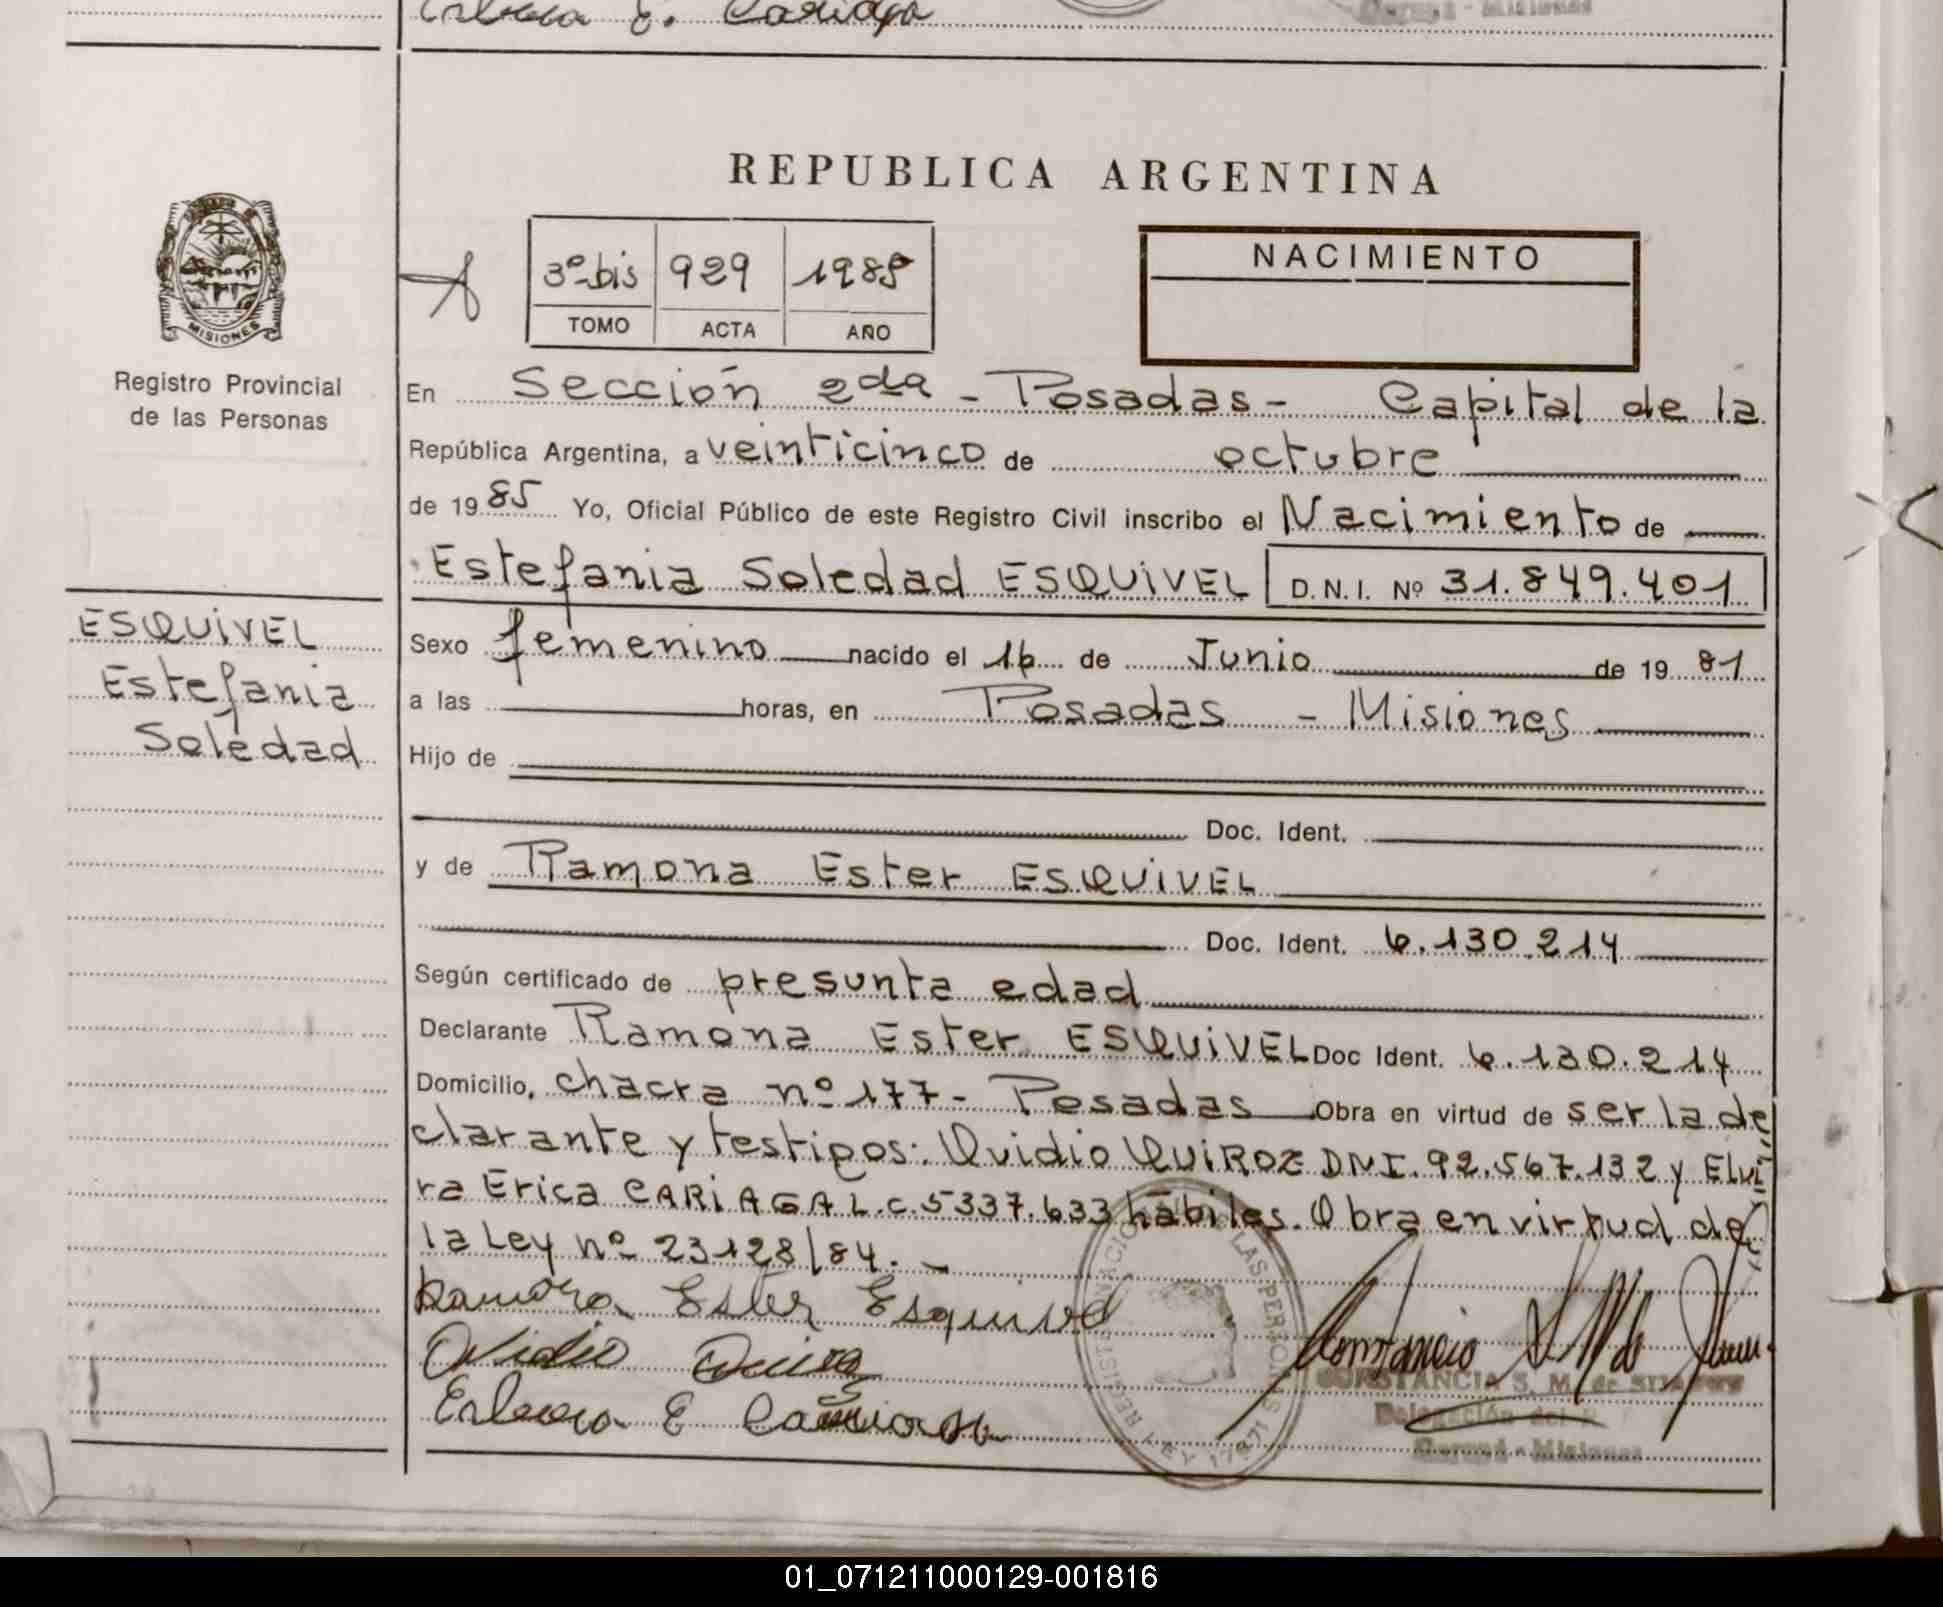 REPUBLICA ARGENTINA
MISIONES
Registro Provincial
de las Personas
3º bis 929 1985
TOMO ACTA AÑO
NACIMIENTO
En Sección 2da - Posadas - Capital de la
República Argentina, a veinticinco de octubre
de 19 85 Yo, Oficial Público de este Registro Civil inscribo el Nacimiento de
Estefania Soledad ESQUIVEL D.N.I. Nº 31.849.401
ESQUIVEL
Estefania
Soledad
Sexo femenino nacido el 16 de Junio de 19 81
a las horas, en Posadas - Misiones
Hijo de
Doc. Ident.
y de Ramona Ester ESQUIVEL
Doc. Ident. 6.130.214
Según certificado de presunta edad
Declarante Ramona Ester ESQUIVEL Doc Ident. 6.130.214
Domicilio, chacra nº 177 - Posadas Obra en virtud de ser la de
clarante y testigos: Ovidio QUIROZ DNI. 92.567.132 y Elvi
ra Erica CARIAGA L.C. 5337.633 hábiles. Obra en virtud de
la Ley nº 23128/84. -
Ramona Ester Esquivel
Ovidio
CONSTANCIA S. M. de
Delegación del
Garupá - Misiones
LAS PERSONAS
LEY 17671
01_071211000129-001816